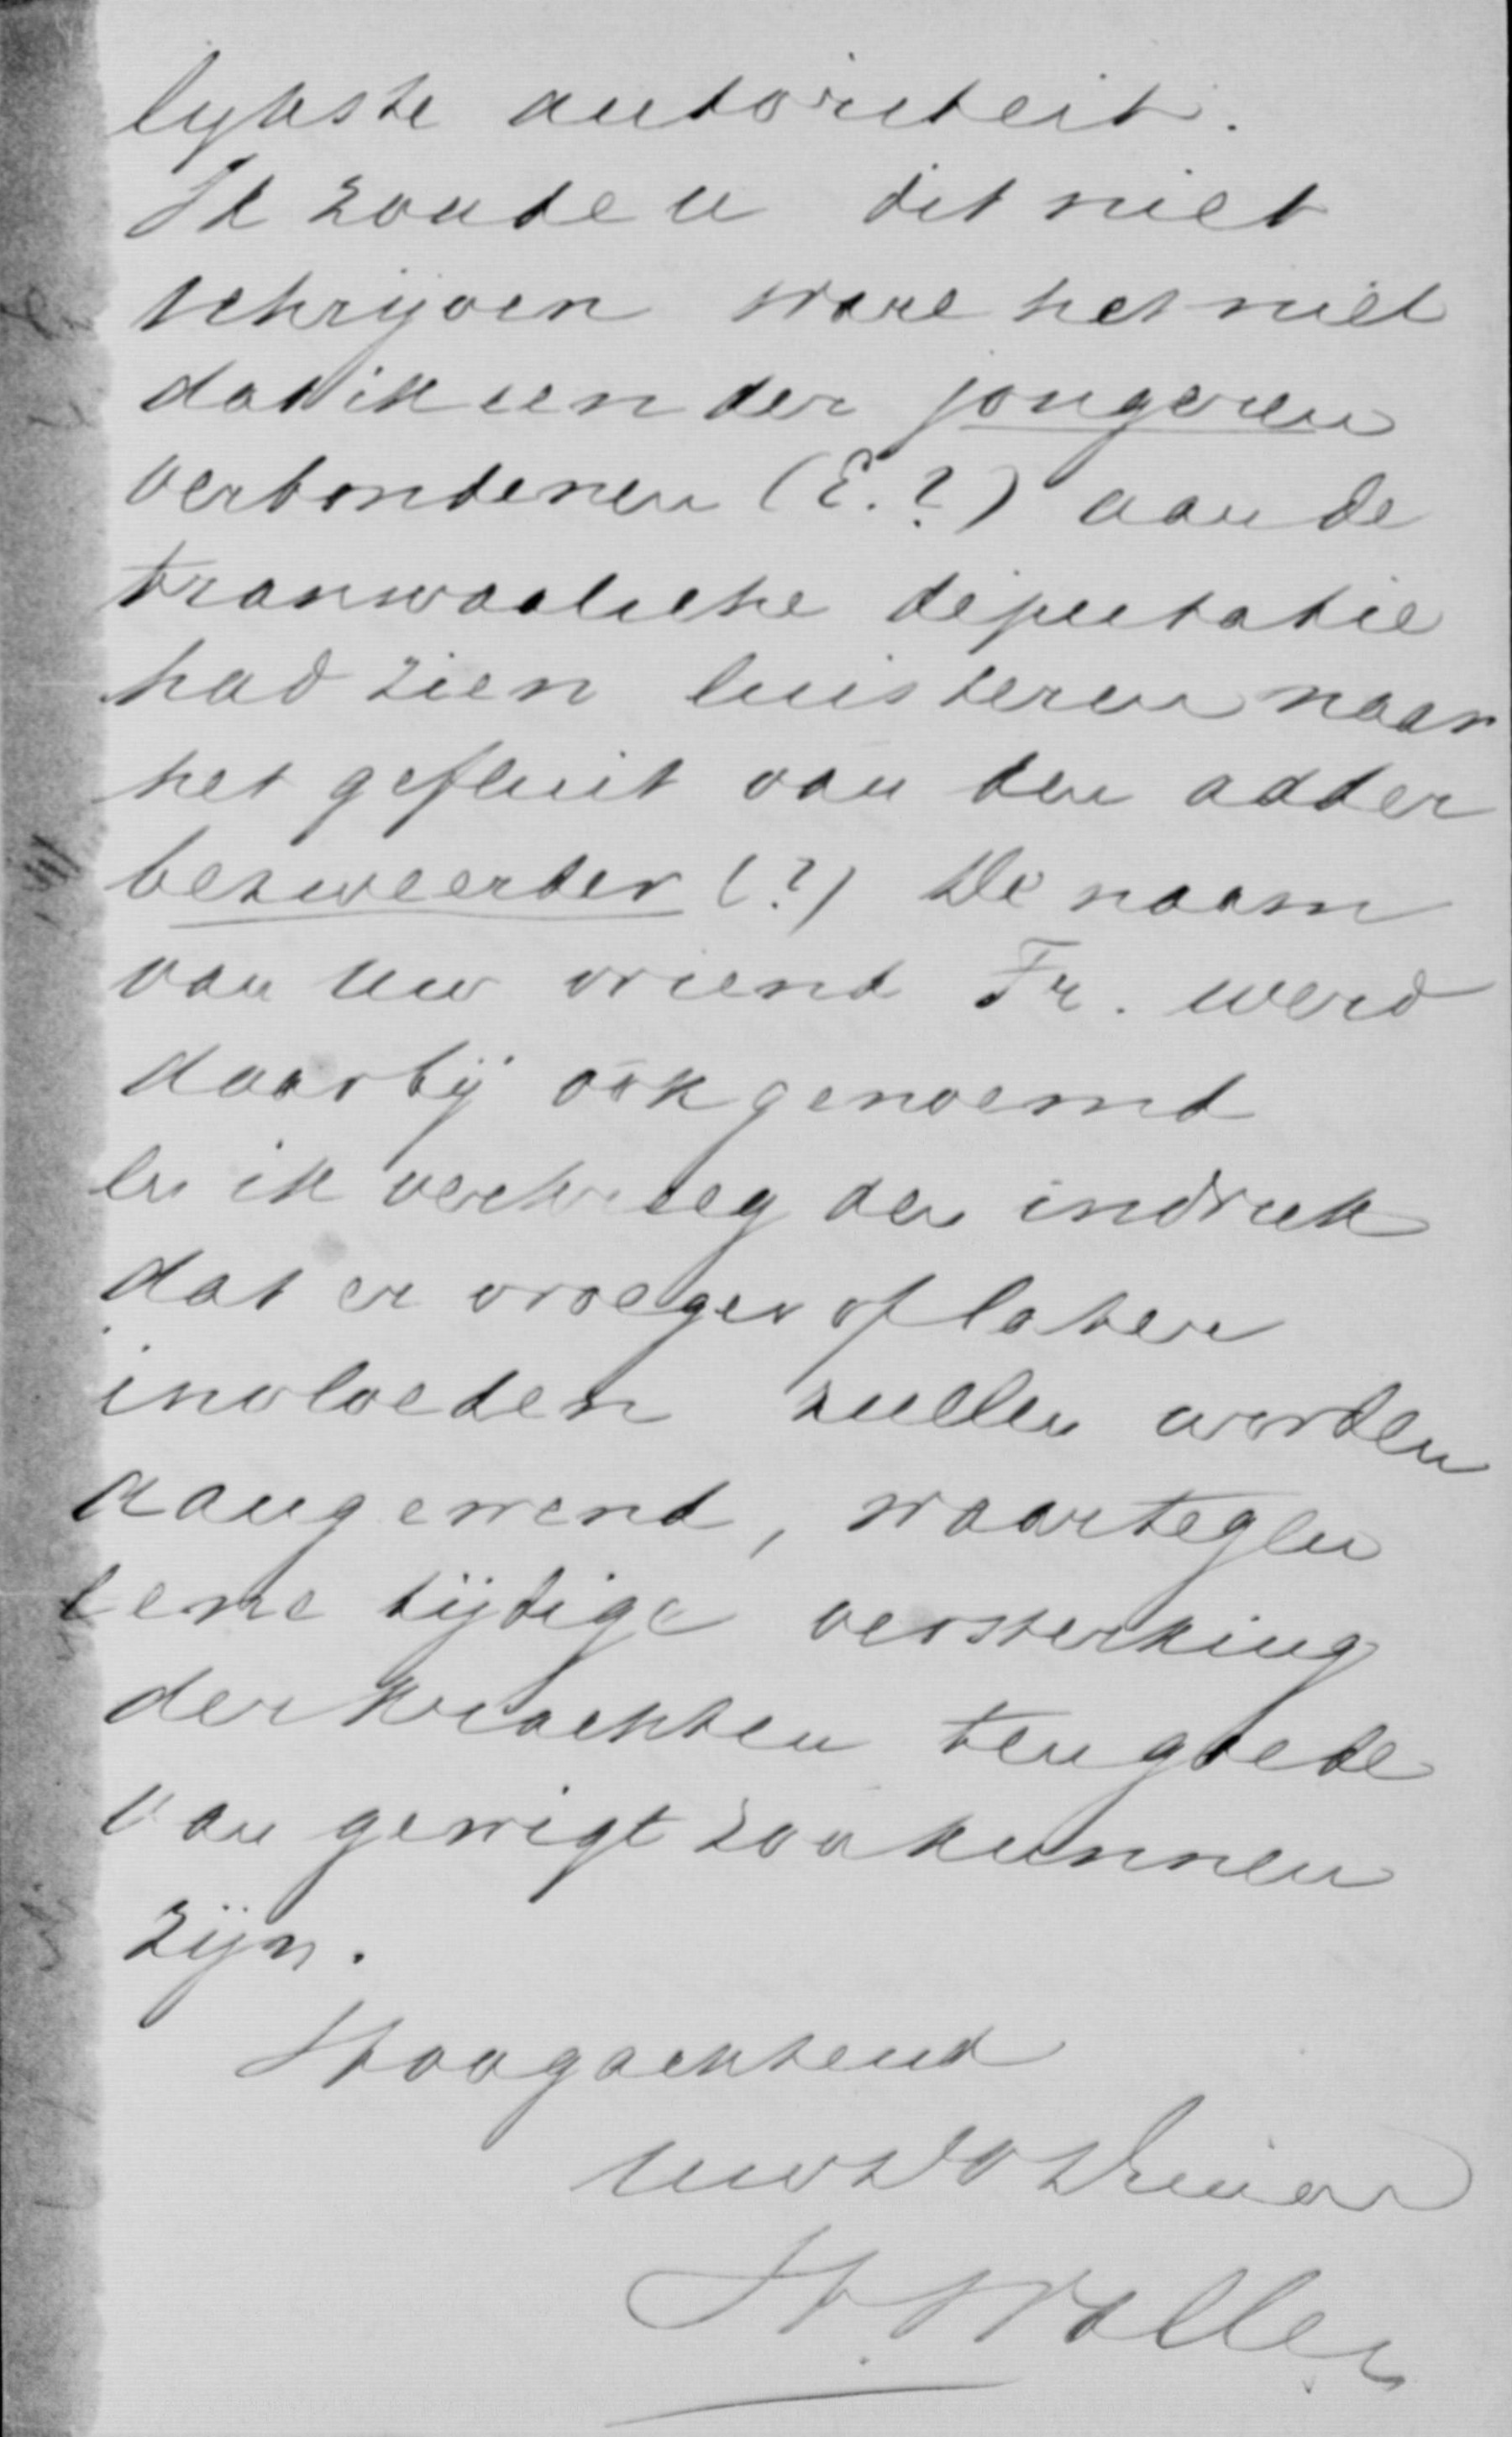 lijkste autoriteit.
Ik zoude u dit niet
schrijven ware het niet
dat ik een der jongeren
verbondenen (E.?) aan de
transvaalsche deputatie
had zien luisteren naar
het gefluit van den adder
bezweerder (?) De naam
van uw vriend Fr. werd
daarbij ook genoemd
en ik verkreeg den indruk
dat er vroeger of later
invloeden zullen worden
aangewend, waartegen
eene tijdige versterking
der krachten ten goede
van gewigt zou kunnen
zijn.
Hoogachtend
Uw Dv Dienaar
H. Waller